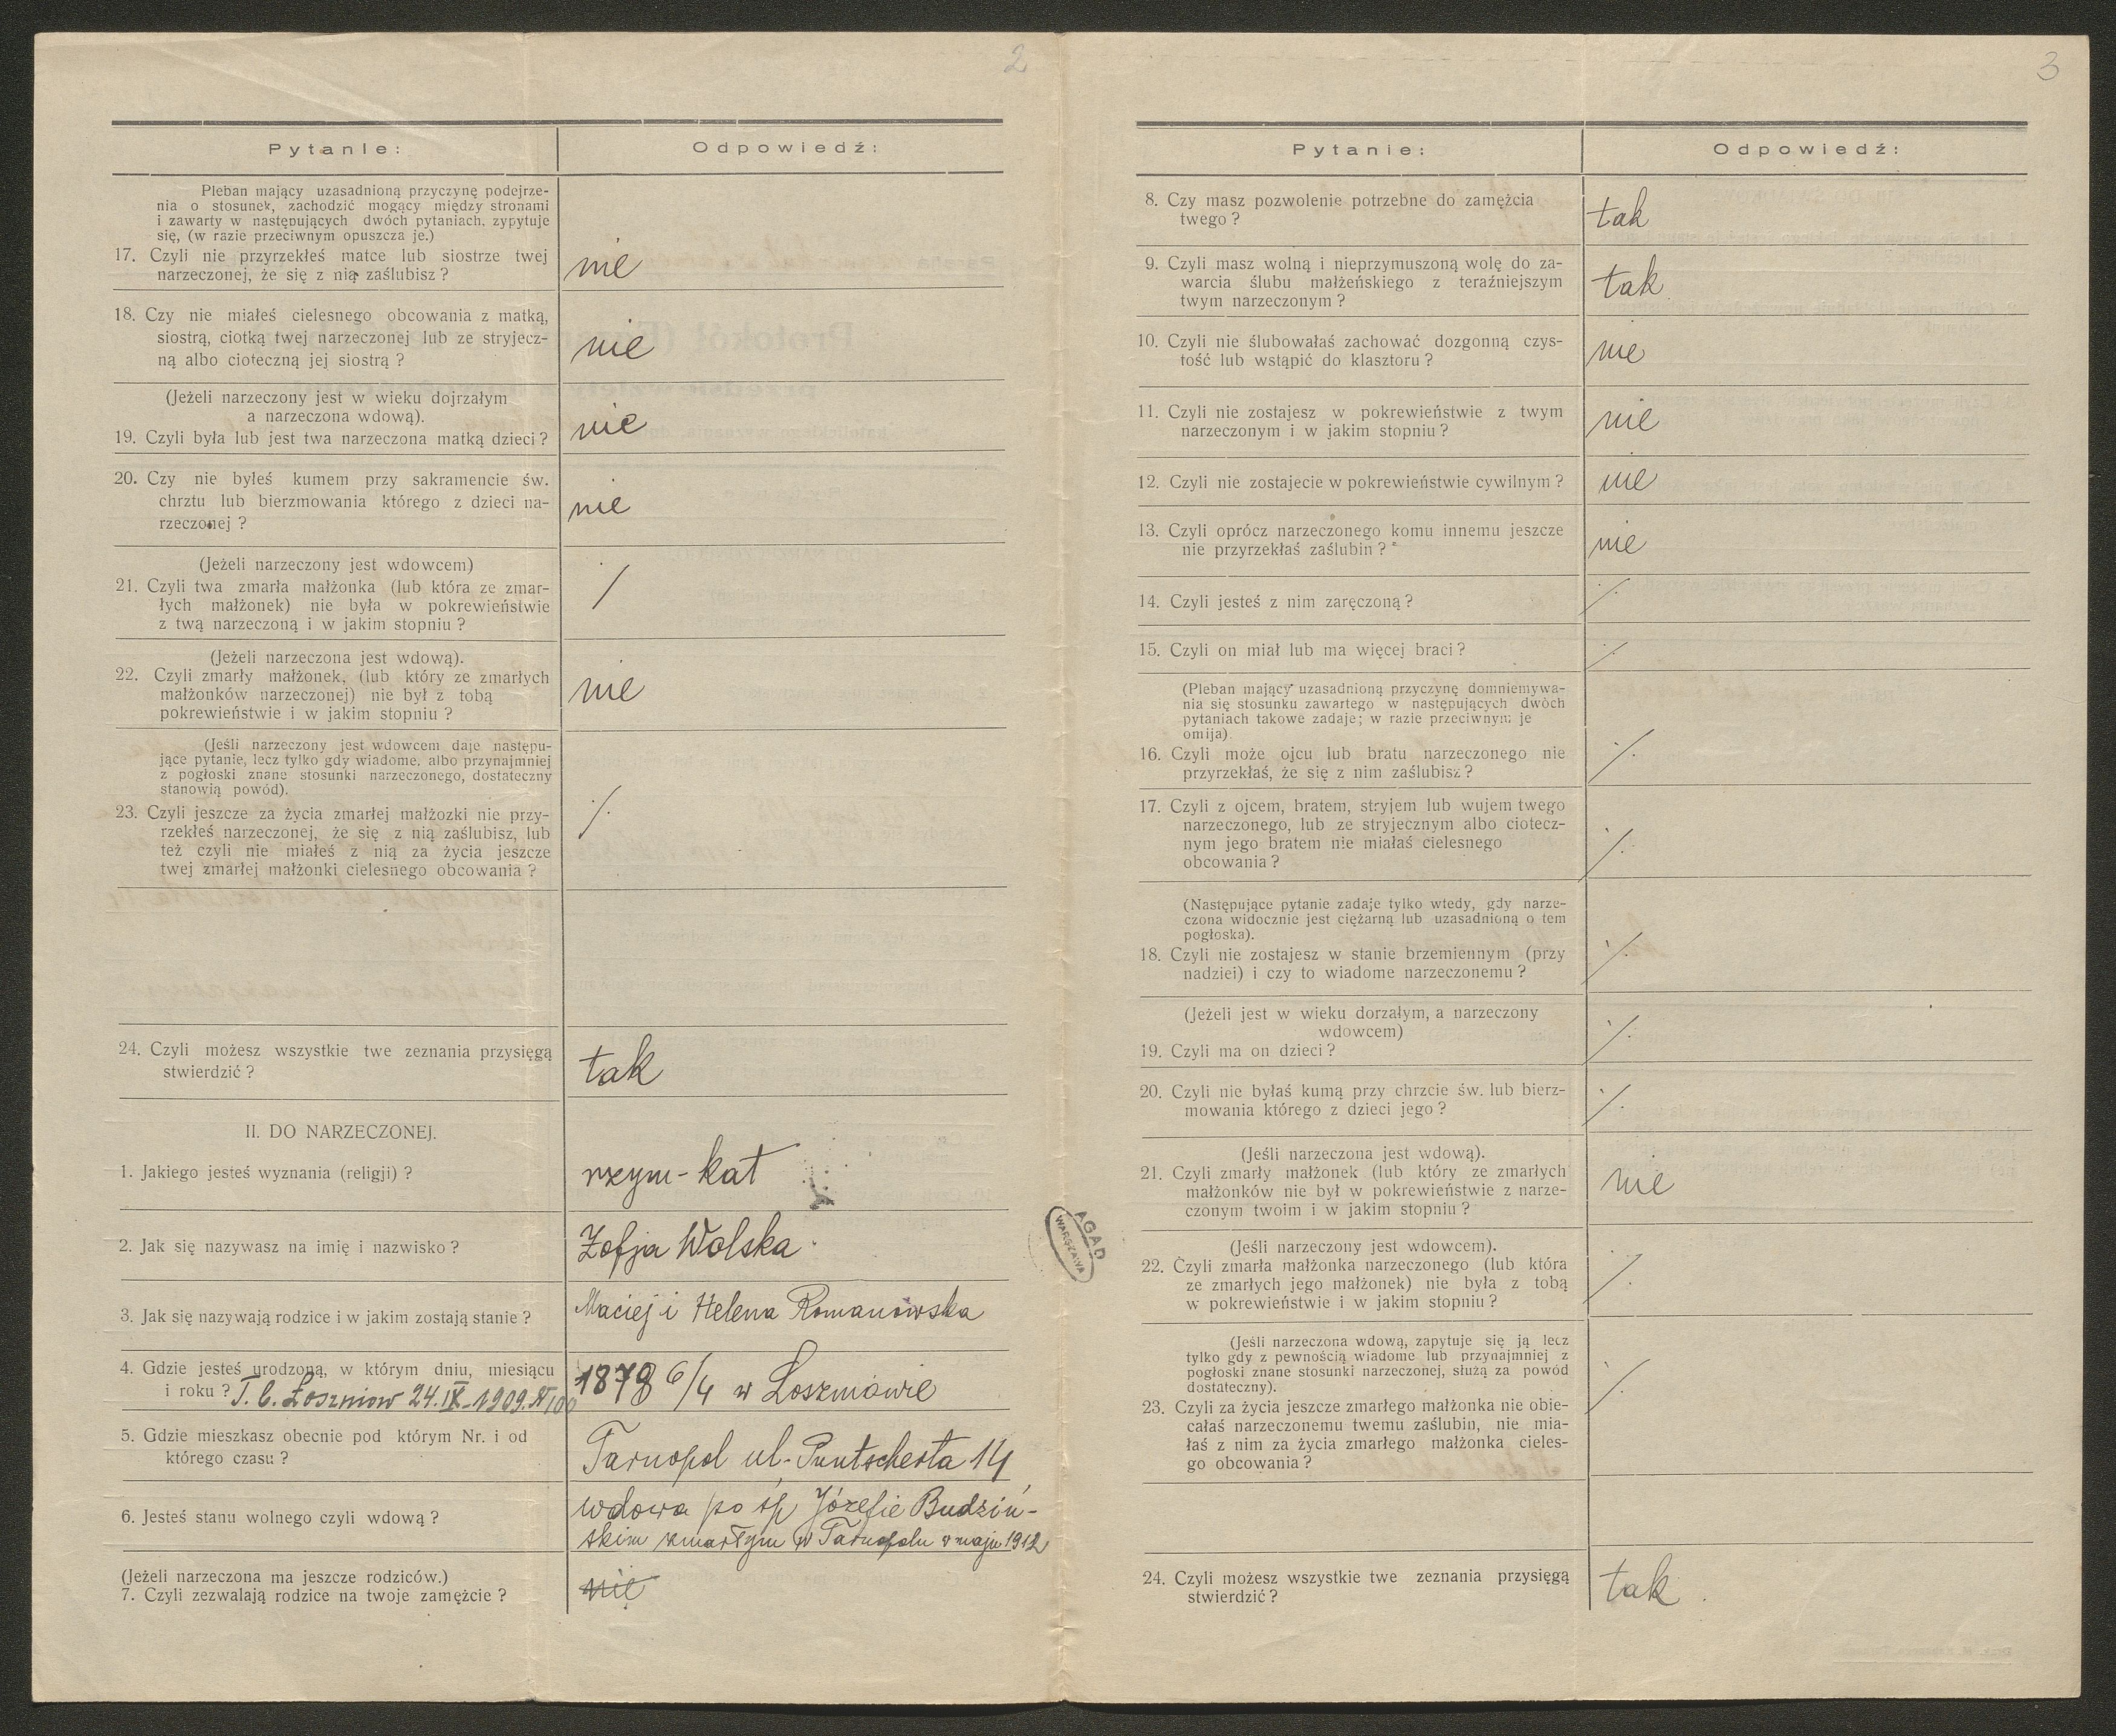 2
Pytanie:
Odpowiedź:
Pleban mający uzasadnioną przyczynę podejrze-
nia o stosunek, zachodzić mogący między stronami
i zawarty w następujących dwóch pytaniach, zypytuje
się, (w razie przeciwnym opuszcza je.)
17. Czyli nie przyrzekłeś matce lub siostrze twej
narzeczonej, że się z nią zaślubisz?
nie
18. Czy nie miałeś cielesnego obcowania z matką,
siostrą, ciotką twej narzeczonej lub ze stryjecz-
ną albo cioteczną jej siostrą?
nie
(Jeżeli narzeczony jest w wieku dojrzałym
a narzeczona wdową).
19. Czyli była lub jest twa narzeczona matką dzieci?
nie
20. Czy nie byłeś kumem przy sakramencie św.
chrztu lub bierzmowania którego z dzieci na-
rzeczonej?
nie
(Jeżeli narzeczony jest wdowcem)
21. Czyli twa zmarła małżonka (lub która ze zmar-
łych małżonek) nie była w pokrewieństwie
z twą narzeczoną i w jakim stopniu?
/
(Jeżeli narzeczona jest wdową).
22. Czyli zmarły małżonek, (lub który ze zmarłych
małżonków narzeczonej) nie był z tobą
pokrewieństwie i w jakim stopniu?
nie
(Jeśli narzeczony jest wdowcem daje następu-
jące pytanie, lecz tylko gdy wiadome, albo przynajmniej
z pogłoski znane stosunki narzeczonego, dostateczny
stanowią powód).
23. Czyli jeszcze za życia zmarłej małżozki nie przy-
rzekłeś narzeczonej, że się z nią zaślubisz, lub
też czyli nie miałeś z nią za życia jeszcze
twej zmarłej małżonki cielesnego obcowania?
./.
24. Czyli możesz wszystkie twe zeznania przysięgą
stwierdzić?
tak
II. DO NARZECZONEJ.
1. Jakiego jesteś wyznania (religji)?
rzym-kat
2. Jak się nazywasz na imię i nazwisko?
Zofja Wolska
3. Jak się nazywają rodzice i w jakim zostają stanie?
Maciej i Helena Romanowska
4. Gdzie jesteś urodzoną, w którym dniu, miesiącu
i roku? T. b. Łoszniow 24.IX-1909. N 100
1878 6/4 w Łoszniowie
5. Gdzie mieszkasz obecnie pod którym Nr. i od
którego czasu?
Tarnopol ul. Puntscherta 14
6. Jesteś stanu wolnego czyli wdową?
wdowa po śp Józefie Budziń-
skim zmarłym w Tarnopolu w maju 1912
(Jeżeli narzeczona ma jeszcze rodziców.)
7. Czyli zezwalają rodzice na twoje zamęźcie?
nie
AGAD
WARSZAWA
3
Pytanie:
Odpowiedź:
8. Czy masz pozwolenie potrzebne do zamężcia
twego?
tak
9. Czyli masz wolną i nieprzymuszoną wolę do za-
warcia ślubu małżeńskiego z teraźniejszym
twym narzeczonym?
tak
10. Czyli nie ślubowałaś zachować dozgonną czys-
tość lub wstąpić do klasztoru?
nie
11. Czyli nie zostajesz w pokrewieństwie z twym
narzeczonym i w jakim stopniu?
nie
12. Czyli nie zostajecie w pokrewieństwie cywilnym?
nie
13. Czyli oprócz narzeczonego komu innemu jeszcze
nie przyrzekłaś zaślubin?
nie
14. Czyli jesteś z nim zaręczoną?
./.
15. Czyli on miał lub ma więcej braci?
./.
(Pleban mający uzasadnioną przyczynę domniemywa-
nia się stosunku zawartego w następujących dwóch
pytaniach takowe zadaje; w razie przeciwnym je
omija).
16. Czyli może ojcu lub bratu narzeczonego nie
przyrzekłaś, że się z nim zaślubisz?
./.
17. Czyli z ojcem, bratem, stryjem lub wujem twego
narzeczonego, lub ze stryjecznym albo ciotecz-
nym jego bratem nie miałaś cielesnego
obcowania?
./.
(Następujące pytanie zadaje tylko wtedy, gdy narze-
czona widocznie jest ciężarną lub uzasadnioną o tem
pogłoska).
18. Czyli nie zostajesz w stanie brzemiennym (przy
nadziei) i czy to wiadome narzeczonemu?
./.
(Jeżeli jest w wieku dorzałym, a narzeczony
wdowcem)
19. Czyli ma on dzieci?
./.
20. Czyli nie byłaś kumą przy chrzcie św. lub bierz-
mowania którego z dzieci jego?
./.
(Jeśli narzeczona jest wdową).
21. Czyli zmarły małżonek (lub który ze zmarłych
małżonków nie był w pokrewieństwie z narze-
czonym twoim i w jakim stopniu?
nie
(Jeśli narzeczony jest wdowcem).
22. Czyli zmarła małżonka narzeczonego (lub która
ze zmarłych jego małżonek) nie była z tobą
w pokrewieństwie i w jakim stopniu?
./.
(Jeśli narzeczona wdową, zapytuje się ją lecz
tylko gdy z pewnością wiadome lub przynajmniej z
pogłoski znane stosunki narzeczonej, służą za powód
dostateczny).
23. Czyli za życia jeszcze zmarłego małżonka nie obie-
całaś narzeczonemu twemu zaślubin, nie mia-
łaś z nim za życia zmarłego małżonka cieles-
go obcowania?
./.
24. Czyli możesz wszystkie twe zeznania przysięgą
stwierdzić?
tak